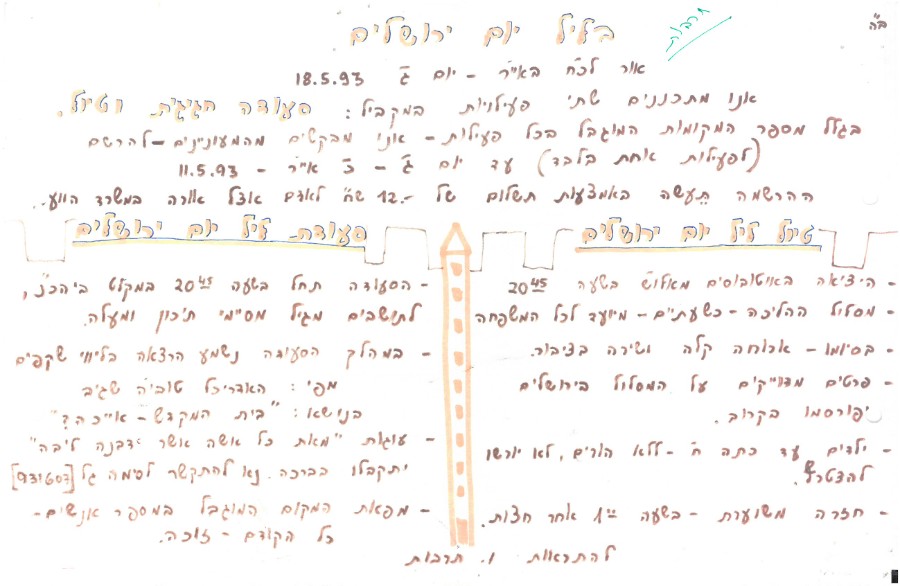 ב"ה
תרבות
בליל יום ירושלים
אור לכ"ח באייר - יום ג' 18.5.93
אנו מתכננים שתי פעילויות במקביל: סעודה חגיגית וטיול.
בגלל מספר המקומות המוגבל בכל פעילות - אנו מבקשים מהמעוניינים - להרשם
(לפעילות אחת בלבד) עד יום ג' - כ' אייר - 11.5.93
ההרשמה תעשה באמצעות תשלום של 12.- ש"ח לאדם אצל אורה במשרד הווע.
טיול ליל יום ירושלים
- היציאה באוטובוסים מאלוש בשעה 20⁴⁵
- מסלול ההליכה - כשעתיים - מיועד לכל המשפחה
- בסיומו - ארוחה קלה ושירה בציבור.
- פרטים מדוייקים על המסלול בירושלים
יפורסמו בקרוב.
- ילדים עד כתה ח' - ללא הורים, לא יורשו
להצטרף.
- חזרה משוערת - בשעה 1⁰⁰ אחר חצות.
סעודת ליל יום ירושלים
- הסעודה תחל בשעה 20⁴⁵ במקלט ביהכנ"ס,
לתושבים מגיל מסיימי תיכון ומעלה.
- במהלך הסעודה נשמע הרצאה בליווי שקפים
מפי: האדריכל טוביה שגיב
בנושא: "בית המקדש - אייכה?"
- עוגות "מאת כל אשה אשר ידבנה ליבה"
יתקבלו בברכה. נא להתקשר לסימה גל
- מפאת המקום המוגבל במספר אנשים -
כל הקודם - זוכה.
להתראות ו. תרבות